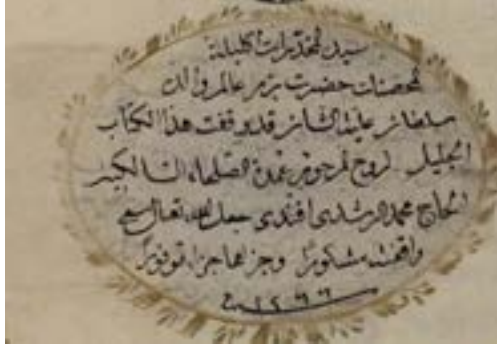 سيدة المخدرات اكليلة
المحصنات حضرت بزم عالم والدة
سلطان علية الشان قد وقفت هذا الكتاب
الجليل لروح المرحوم عمدة الصلحاء الكبير
الحاج محمد الرشدى افندى جعل الله تعالى سعيها
واقفته مشكورا وجزاها جزاء توفيرا
١٢٦٦